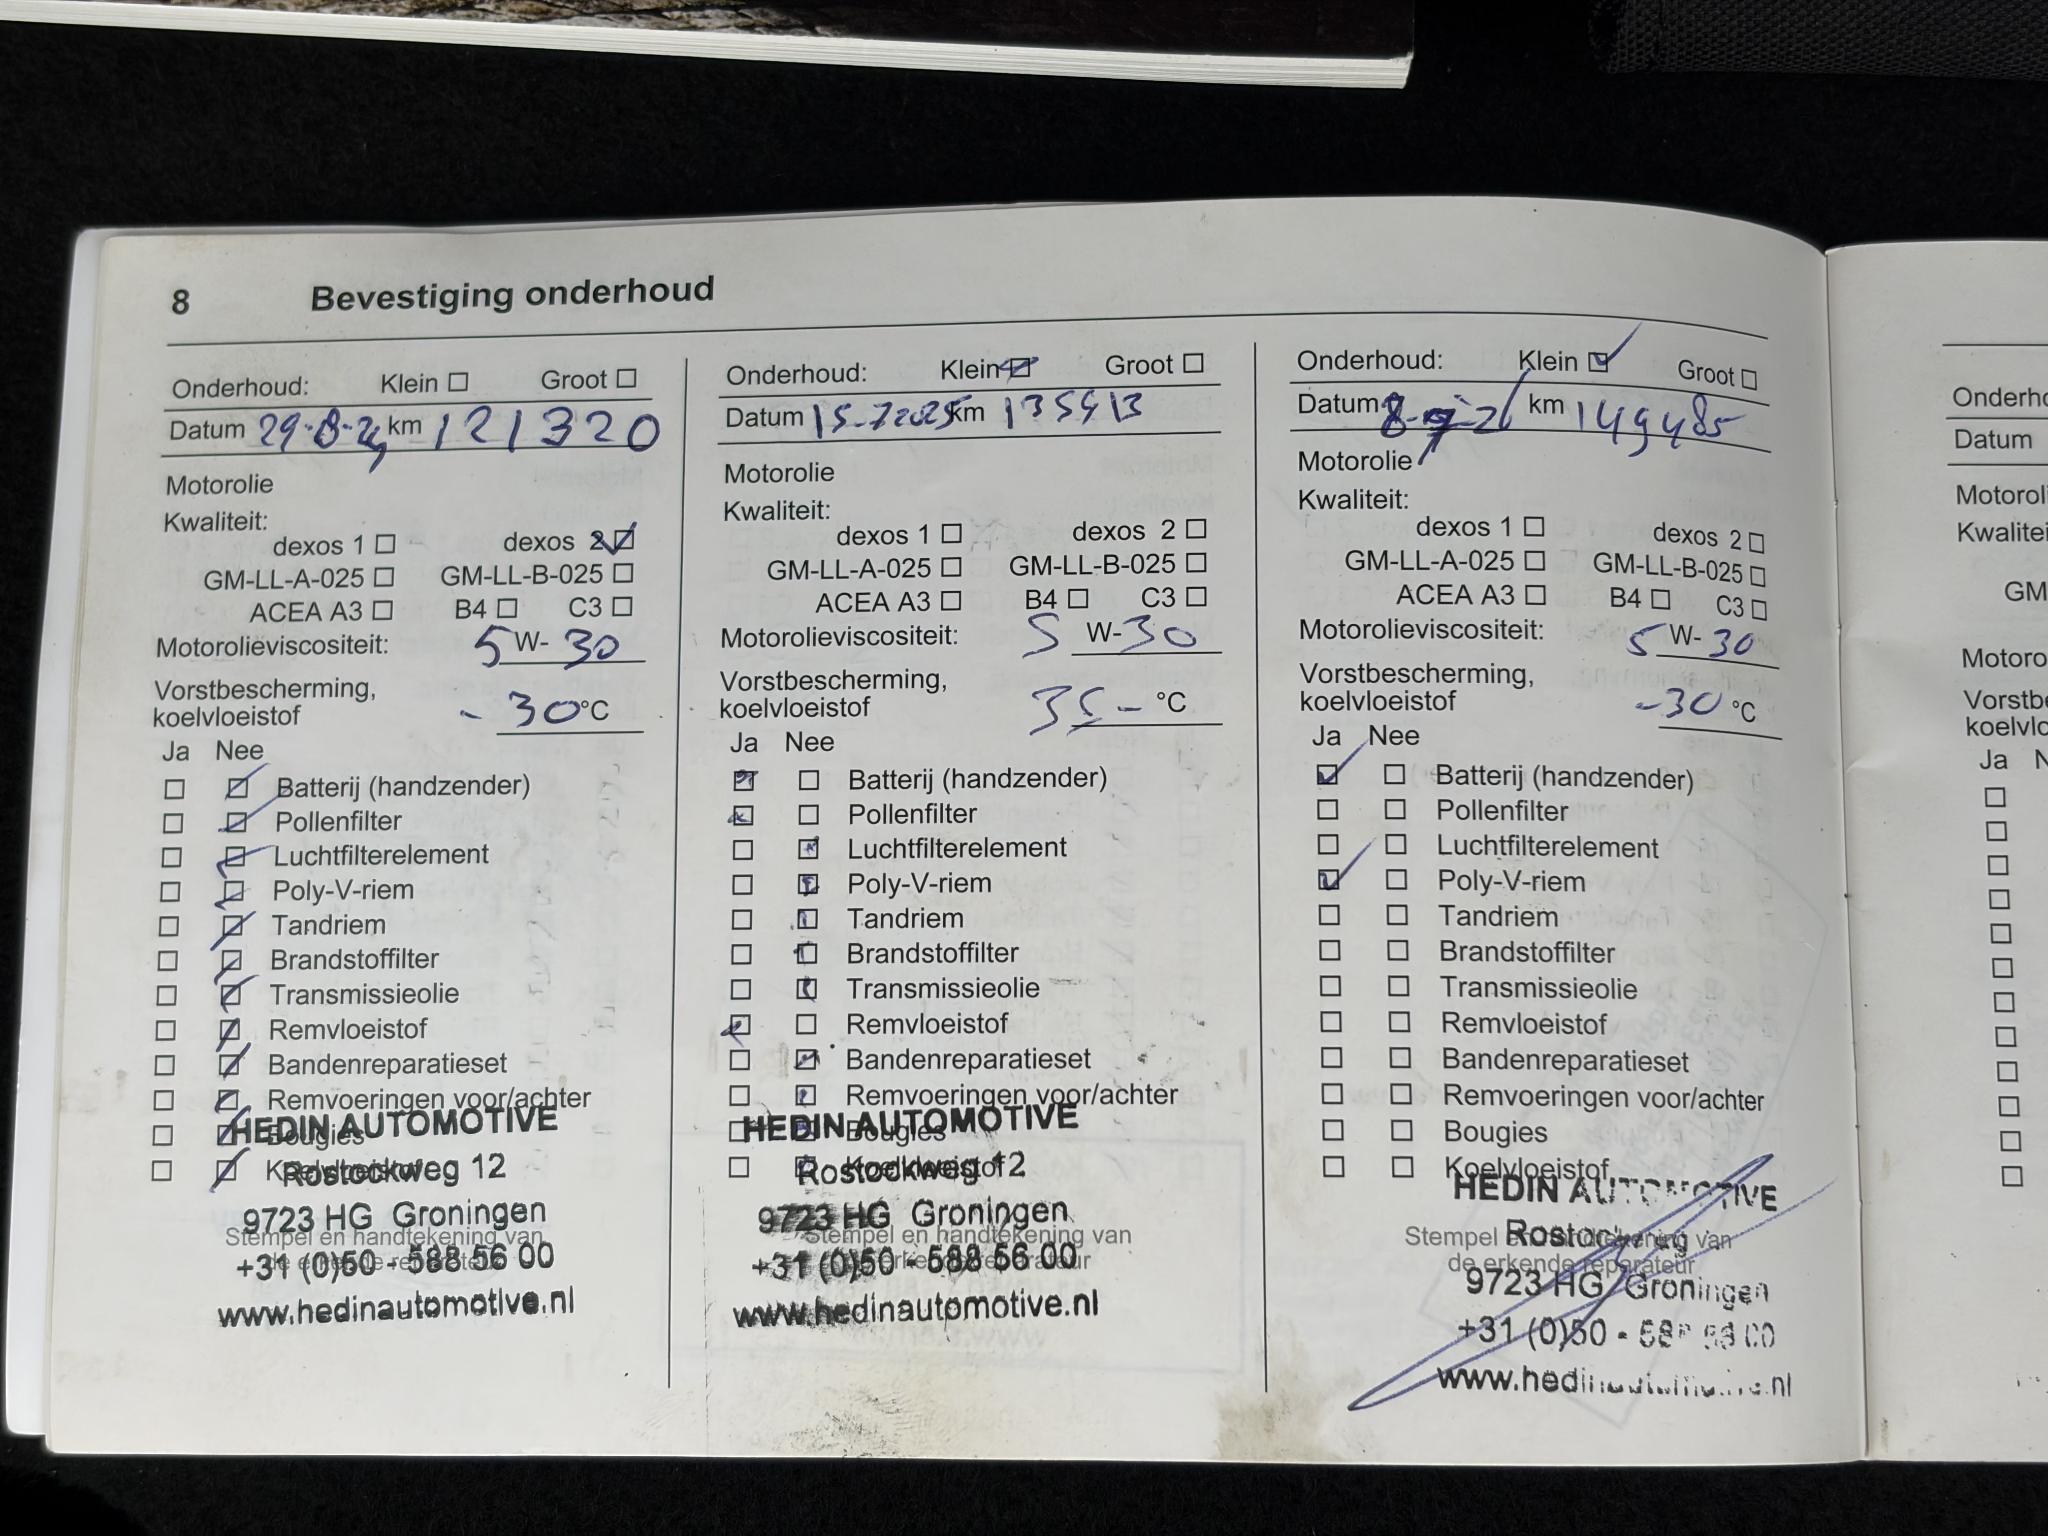 8 Bevestiging onderhoud
Onderhoud: Klein Groot
Datum 29-8-24 km 121320
Motorolie
Kwaliteit:
dexos 1 dexos 2
GM-LL-A-025 GM-LL-B-025
ACEA A3 B4 C3
Motorolieviscositeit: 5 W- 30
Vorstbescherming,
koelvloeistof - 30 °C
Ja Nee
Batterij (handzender)
Pollenfilter
Luchtfilterelement
Poly-V-riem
Tandriem
Brandstoffilter
Transmissieolie
Remvloeistof
Bandenreparatieset
Remvoeringen voor/achter
HEDIN AUTOMOTIVE
Bougies
Koelvloeistof
Rostockweg 12
9723 HG Groningen
Stempel en handtekening van
de erkende reparateur
+31 (0)50 - 588 56 00
www.hedinautomotive.nl
Onderhoud: Klein Groot
Datum 15-7-2025 km 135913
Motorolie
Kwaliteit:
dexos 1 dexos 2
GM-LL-A-025 GM-LL-B-025
ACEA A3 B4 C3
Motorolieviscositeit: 5 W- 30
Vorstbescherming,
koelvloeistof 35 - °C
Ja Nee
Batterij (handzender)
Pollenfilter
Luchtfilterelement
Poly-V-riem
Tandriem
Brandstoffilter
Transmissieolie
Remvloeistof
Bandenreparatieset
Remvoeringen voor/achter
HEDIN AUTOMOTIVE
Bougies
Koelvloeistof
Rostockweg 12
9723 HG Groningen
Stempel en handtekening van
de erkende reparateur
+31 (0)50 - 588 56 00
www.hedinautomotive.nl
Onderhoud: Klein Groot
Datum km 149485
Motorolie
Kwaliteit:
dexos 1 dexos 2
GM-LL-A-025 GM-LL-B-025
ACEA A3 B4 C3
Motorolieviscositeit: 5 W- 30
Vorstbescherming,
koelvloeistof -30 °C
Ja Nee
Batterij (handzender)
Pollenfilter
Luchtfilterelement
Poly-V-riem
Tandriem
Brandstoffilter
Transmissieolie
Remvloeistof
Bandenreparatieset
Remvoeringen voor/achter
Bougies
Koelvloeistof
HEDIN AUTOMOTIVE
Rostockweg
Stempel en handtekening van
de erkende reparateur
9723 HG Groningen
+31 (0)50 - 588 56 00
www.hedinautomotive.nl
Datum
Ja